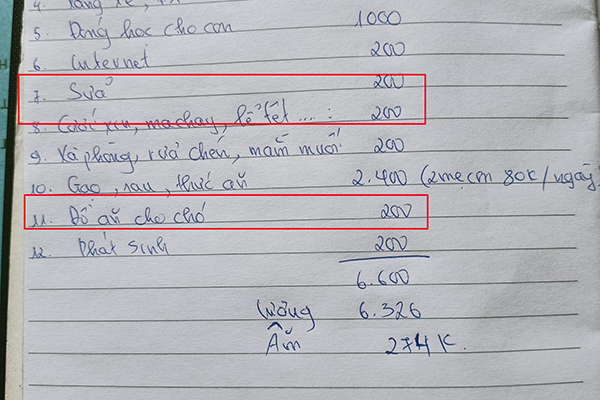 4. Xăng xe,
5. Đóng học cho con 1000
6. Internet 200
7. Sữa 200
8. Cưới xin, ma chay, lễ tết ... : 200
9. Xà phòng, rửa chén, mắm muối: 200
10. Gạo, rau, thức ăn 2.400 (2 mẹ con 80k/ngày)
11. Đồ ăn cho chó 200
12. Phát sinh 200
6.600
Lương 6.326
Âm 274 K.